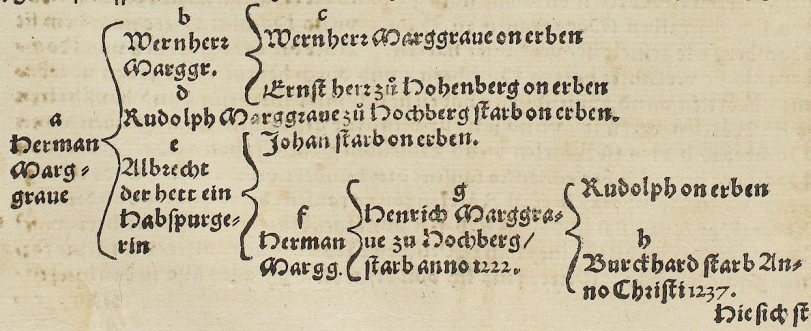 a
Herman
Marg⸗
graue
b
Wernherr
Marggr.
c
Wernherr Marggraue on erben
Ernst herr zů Hohenberg on erben
d
Rudolph Marggraue zů Hochberg starb on erben.
e
Albrecht
der hett ein
Habspurge⸗
rin
Johan starb on erben.
f
Herman
Margg.
g
Henrich Marggra⸗
ue zu Hochberg/
starb anno 1222.
Rudolph on erben
h
Burckhard starb An⸗
no Christi 1237.
Hie sich st